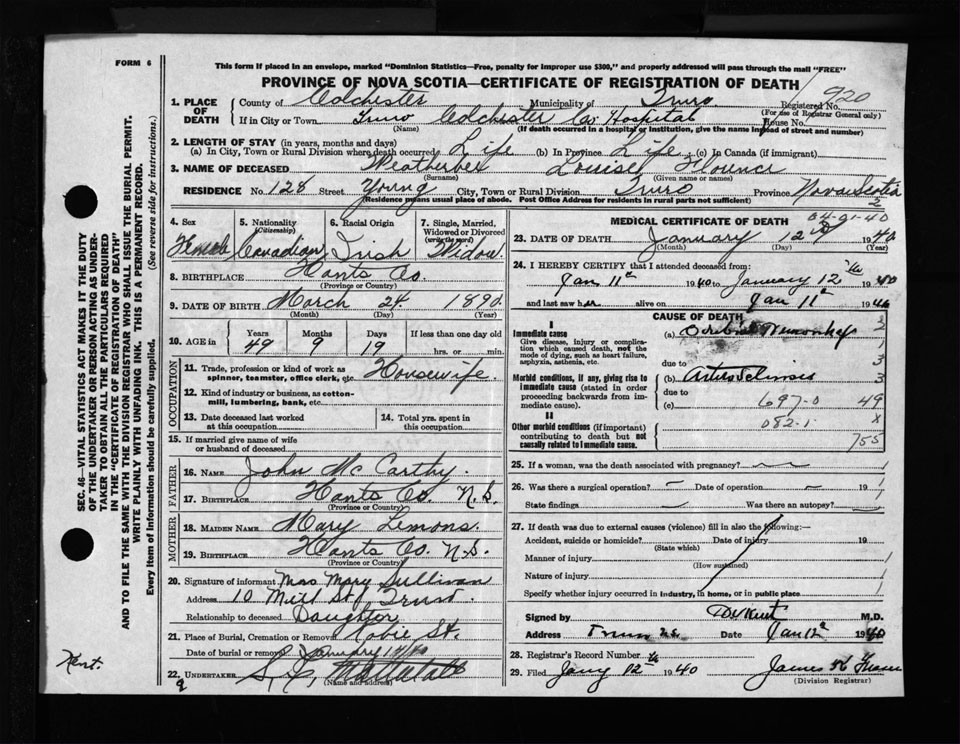 FORM 6
This form if placed in an envelope, marked "Dominion Statistics—Free, penalty for improper use $300," and properly addressed will pass through the mail "FREE"
PROVINCE OF NOVA SCOTIA—CERTIFICATE OF REGISTRATION OF DEATH
1. PLACE OF DEATH County of Colchester Municipality of Truro Registered No. 920
(For use of Registrar General only)
If in City or Town Truro Colchester Co Hospital House No.
(Name) (If death occurred in a hospital or institution, give the name instead of street and number)
2. LENGTH OF STAY (in years, months and days)
(a) In City, Town or Rural Division where death occurred Life (b) In Province Life (c) In Canada (if immigrant)
3. NAME OF DECEASED Weatherbee Louise Florence
(Surname) (Given name or names)
RESIDENCE No. 128 Street Young City, Town or Rural Division Truro Province Nova Scotia
(Residence means usual place of abode. Post Office Address for residents in rural parts not sufficient) 2
4. Sex 5. Nationality (Citizenship) 6. Racial Origin 7. Single, Married, Widowed or Divorced (write the word)
Female Canadian Irish Widow
8. BIRTHPLACE Hants Co.
(Province or Country)
9. DATE OF BIRTH March 24 1890
(Month) (Day) (Year)
10. AGE in Years Months Days If less than one day old
49 9 19 hrs. or min.
OCCUPATION
11. Trade, profession or kind of work as spinner, teamster, office clerk, etc. Housewife.
12. Kind of industry or business, as cotton-mill, lumbering, bank, etc.
13. Date deceased last worked at this occupation
14. Total yrs. spent in this occupation
15. If married give name of wife or husband of deceased
FATHER
16. NAME John McCarthy.
17. BIRTHPLACE Hants Co. N.S.
(Province or Country)
MOTHER
18. MAIDEN NAME Mary Lemons.
19. BIRTHPLACE Hants Co. N.S.
(Province or Country)
20. Signature of informant Mrs Mary Sullivan
Address 10 Mill St
Relationship to deceased Daughter
21. Place of Burial, Cremation or Removal Robie St.
Date of burial or removal January
22. UNDERTAKER
(Name and address)
MEDICAL CERTIFICATE OF DEATH
23. DATE OF DEATH January 12 1940
(Month) (Day) (Year)
24. I HEREBY CERTIFY that I attended deceased from:
Jan 11th 1940 to January 12th 1940
and last saw her alive on Jan 11th 1940
CAUSE OF DEATH
I
Immediate cause
Give disease, injury or complication which caused death, not the mode of dying, such as heart failure, asphyxia, asthenia, etc.
(a)
due to
Morbid conditions, if any, giving rise to immediate cause (stated in order proceeding backwards from immediate cause).
(b)
due to
(c) 697-0 49
II
Other morbid conditions (if important) contributing to death but not causally related to immediate cause.
082.1. X
755
25. If a woman, was the death associated with pregnancy?
26. Was there a surgical operation? — Date of operation — 19
State findings Was there an autopsy?
27. If death was due to external causes (violence) fill in also the following:—
Accident, suicide or homicide? Date of injury 19
(State which)
Manner of injury
(How sustained)
Nature of injury
Specify whether injury occurred in industry, in home, or in public place
Signed by M.D.
Address Truro N.S. Date Jan 12th 1940
28. Registrar's Record Number
29. Filed Jany 12th 1940 James K Fraser
(Division Registrar)
SEC. 46—VITAL STATISTICS ACT MAKES IT THE DUTY
OF THE UNDERTAKER OR PERSON ACTING AS UNDER-
TAKER TO OBTAIN ALL THE PARTICULARS REQUIRED
IN THE "CERTIFICATE OF REGISTRATION OF DEATH"
AND TO FILE THE SAME WITH THE DIVISION REGISTRAR WHO SHALL ISSUE THE BURIAL PERMIT.
WRITE PLAINLY WITH UNFADING INK. THIS IS A PERMANENT RECORD.
Every item of information should be carefully supplied. (See reverse side for instructions.)
Kent.